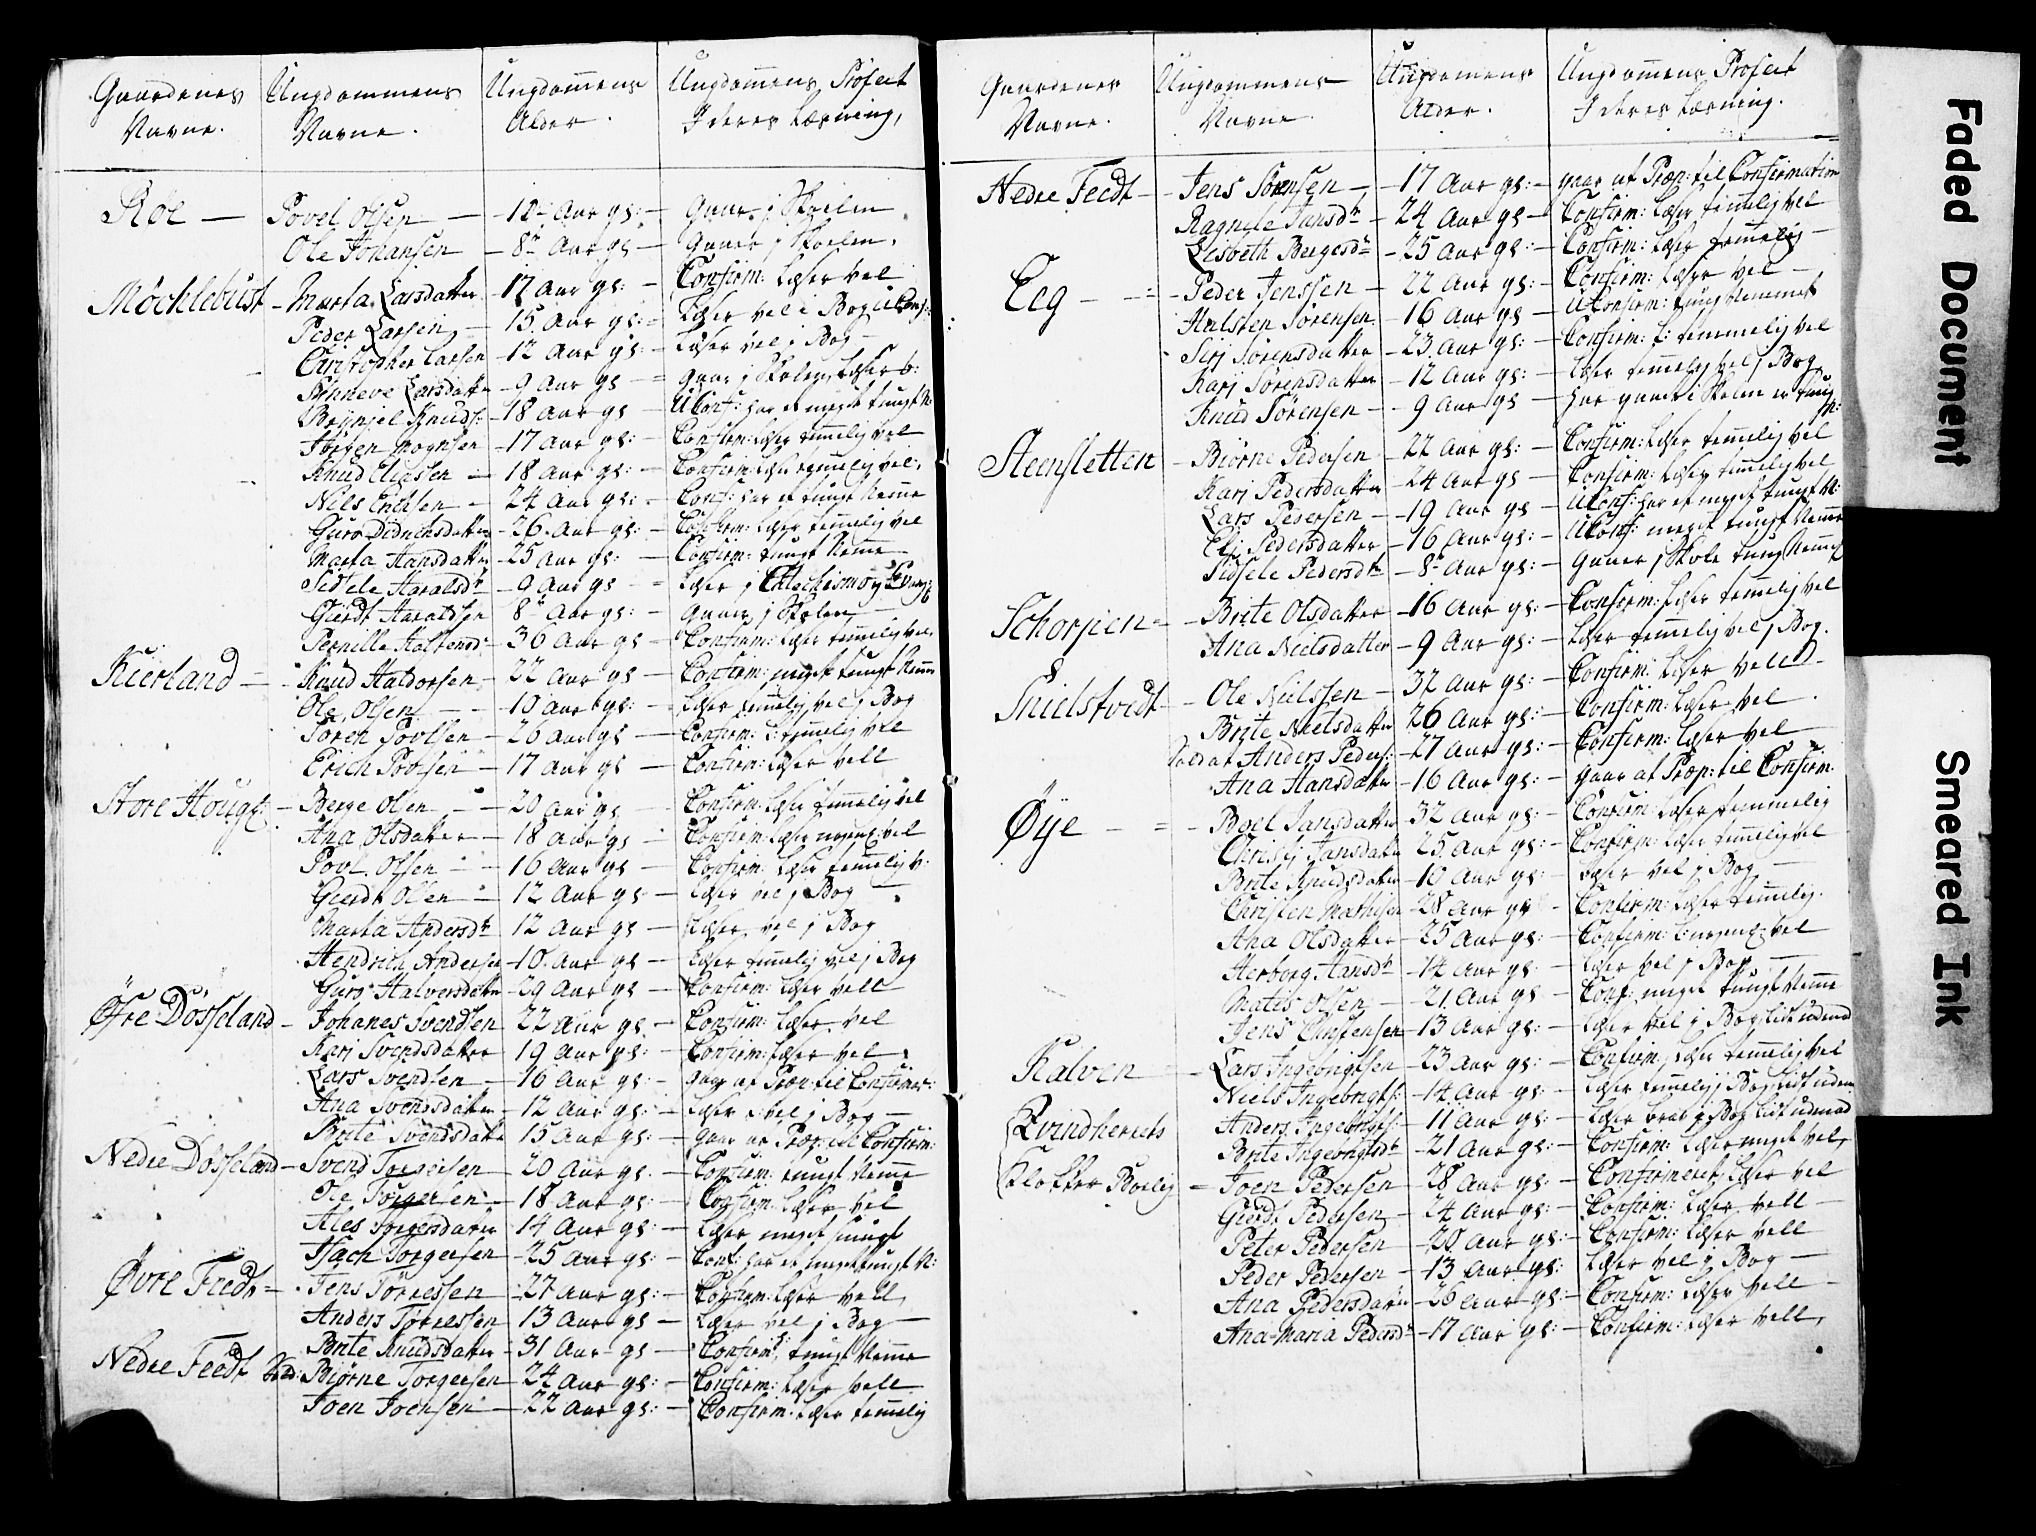 Gaardenes Ungdommens Ungdom̄ens Ungdom̄ens Profect
Navne. Navne. Alder. I deres Læsning,
Røe — Povel Olsen — 10 Aar gl: — Gaar j Skoelen
Ole Johansen — 8te Aar gl — Gaaer j Skoelen.
Møcklebust — Marta Larsdatter — 17 Aar gl: — Confirm: Læser vel
Peder Larsen — 15 Aar gl: — Læser vel i Bog
Christopher Larsen — 12 Aar gl: — Læser vel j Bog —
Larsdatter — 9 Aar gl — Gaar j Skolen, Læser b:
Brynjel Knuds: — 18 Aar gl — UConf: har et meget tungt N:
Jørgen Mognsen — 17 Aar gl: — Confirm: Læser tem̄elig vel
Knud Eliasen — 18 Aar gl: — Confirm: Læser tem̄elig vel.
Nils Erichsen — 24 Aar gl: — Conf: har et tungt Nem̄e
Guro Didrichsdatter — 26 Aar gl: — Confirm: Læser tem̄elig vel
Marta Hansdatter — 25 Aar gl: — Confirm: tungt Nem̄e
Sidsele Haralsdtr — 9 Aar gl — Læser j Catechismo og Evang:
Gierdt Haraldsen — 8te Aar gl: — Gaaer j Skolen —
Pernille — 36 Aar gl — Confirm: Læser tem̄elig vel.
Kierland — Knud Haldorsen — 22 Aar gl — Confirm: meget tungt Nem̄e
Ole Olsen — 10 Aar gl: — Læser tem̄elig vel j Bog
Povlsen — 26 Aar gl — Confirm: L: tem̄elig vel
Erich Povlsen — 17 Aar gl — Confirm: Læser vell
Store Houg: — Berge Olsen — 20 Aar gl — Confirm: Læser tem̄elig vel
Ana Olsdatter — 18 Aar gl — Confirm: Læser nogenl: vel
Povl Olsen — 16 Aar gl — Confirm: Læser tem̄elig v:
Gierdt Olsen — 12 Aar gl — Læser vel j Bog —
Marta Andersdtr — 12 Aar gl — Læser vel j Bog
Hendrich Andersen — 10 Aar gl — Læser tem̄elig vel j Bog
Guro Halversdatter — 29 Aar gl — Confirm: Læser vell
Øfre Døsseland — Johanes Svendsen — 22 Aar gl — Confirm: Læser vel
Kari Svendsdatter — 19 Aar gl: — Confirm: Læser vel
Lars Svendsen — 16 Aar gl: — gaar at Præp: til Confirmer:
Ana Svendsdatter — 12 Aar gl: — Læser vel j Bog —
Brite Svendsdatter — 15 Aar gl: — gaar at Præp: til Confirm:
Nedre Døsseland — Svend Torgersen — 20 Aar gl — Confirm: tungt Nem̄e
Ole Torgersen — 18 Aar gl: — Confirm: Læser vel
Ales Torgersdatter — 14 Aar gl: — Læser meget smugt
Isach Torgersen — 25 Aar gl: — Conf: har et meget tungt N:
Øvre Feedt — Jens Tørresen — 27 Aar gl: — Confirm: Læser vell,
Anders Tørresen — 13 Aar gl — Læser vel j Bog —
Brite Knudsdatter — 31 Aar gl — Confirm: tungt Nem̄e
Nedre Feedt Sold: Biørne Torgersen — 24 Aar gl: — Confirm: Læser vell
Joen Joensen — 22 Aar gl: — Confirm: Læser tem̄elig
Gaardenes Ungdommens Ungdomens Ungdom̄ens Profect
Navne. Navne Alder. I deres Læsning.
Nedre Feedt — Jens Sørensen — 17 Aar gl: — gaar at Præp: til Confirmation
Ragnele Jansdtr — 24 Aar gl — Confirm: Læser tem̄elig vel
Lisbeth Bergesdtr — 25 Aar gl: — Confirm: Læser tem̄elig —
Eeg — Peder Jenssen — 22 Aar gl: — Confirm: Læser vel —
Halsten Sørensen — 16 Aar gl — UConfirm: tung Nemmet
Siri Sørensdatter — 23 Aar gl: — Confirm: L: temmelig vel
Kari Sørensdatter — 12 Aar gl: — Læser tem̄elig vel j Bog
Knud Sørensen — 9 Aar gl — har gaaet i Skolen er tung N:
Steensletten — Biørne Pedersen — 22 Aar gl: — Confirm: Læser tem̄elig vel
Kari Pedersdatter — 24 Aar gl — Confirm: Læser tem̄elig vel
Lars Pedersen — 19 Aar gl — UConf: har et meget tungt N:
Eli Pedersdatter — 16 Aar gl: — UConf: meget tungt Nem̄e
Sidsele Pedersdtr — 8te Aar gl: — Gaaer j Skole tung Nem̄et
Schorpen — Brite Olsdatter — 16 Aar gl: — Confirm: Læser tem̄elig vel
Ana Nielsdatter — 9 Aar gl: — Læser tem̄elig vel j Bog.
Snielstvedt — Ole Nielssen — 32 Aar gl: — Confirm: Læser vell —
Brite Nielsdatter — 26 Aar gl: — Confirm: Læser vel.
Soldat Anders Peders: — 27 Aar gl: — Confirm: Læser vel
Ana Hansdatter — 16 Aar gl: — gaar at Præp: til Confirm:
Øye — Boel Jansdatter — 32 Aar gl: — Confirm: Læser temmelig
Christj Jansdatter — 25 Aar gl: — Confirm: Læser tem̄elig vel
Brite Knudsdatter — 10 Aar gl: — Læser vel j Bog —
Christen Mathisen — 28 Aar gl — Confirm: Læser tem̄elig.
Ana Olsdatter — 25 Aar gl: — Confirm: L: nogenl: vel
Herborg Hansdtr — 14 Aar gl: — Læser vel j Bog —
Matis Olsen — 21 Aar gl — Conf: meget tungt Nem̄e
Jens Christensen — 13 Aar gl: — Læser vel j Bog lidt udenad
Kalven — Lars Ingebrigtsen — 23 Aar gl: — Confirm: Læser tem̄elig vel
Niels Ingebrigts: — 14 Aar gl: — Læser tem̄elig j Bog lidt uden
Qvindherrets Anders Ingebrigts: — 11 Aar gl: — Læser brav j Bog lidt udenad
Brite Ingebrigtsdtr — 21 Aar gl: — Confirm: Læser meget vel,
Klokker Boelig — Joen Pedersen — 28 Aar gl: — Confirmeret, Læser vel
Gierdt Pedersen — 24 Aar gl: — Confirm: Læser vell —
Peter Pedersen — 20 Aar gl: — Confirm: Læser vell
Peder Pedersen — 13 Aar gl: — Læser vel j Bog —
Ana Pedersdatter — 26 Aar gl: — Confirm: Læser vell —
Ana Maria Pedersdtr — 17 Aar gl: — Confirm: Læser vell,
Faded Document
Smeared Ink